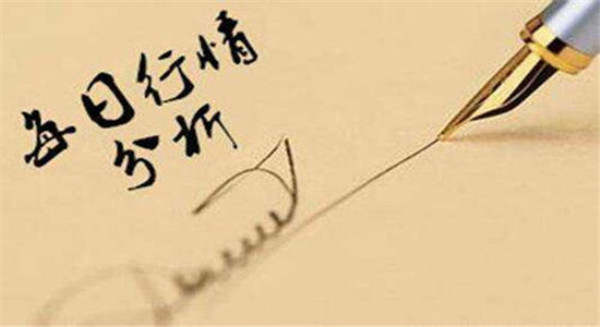 每日行情
分析